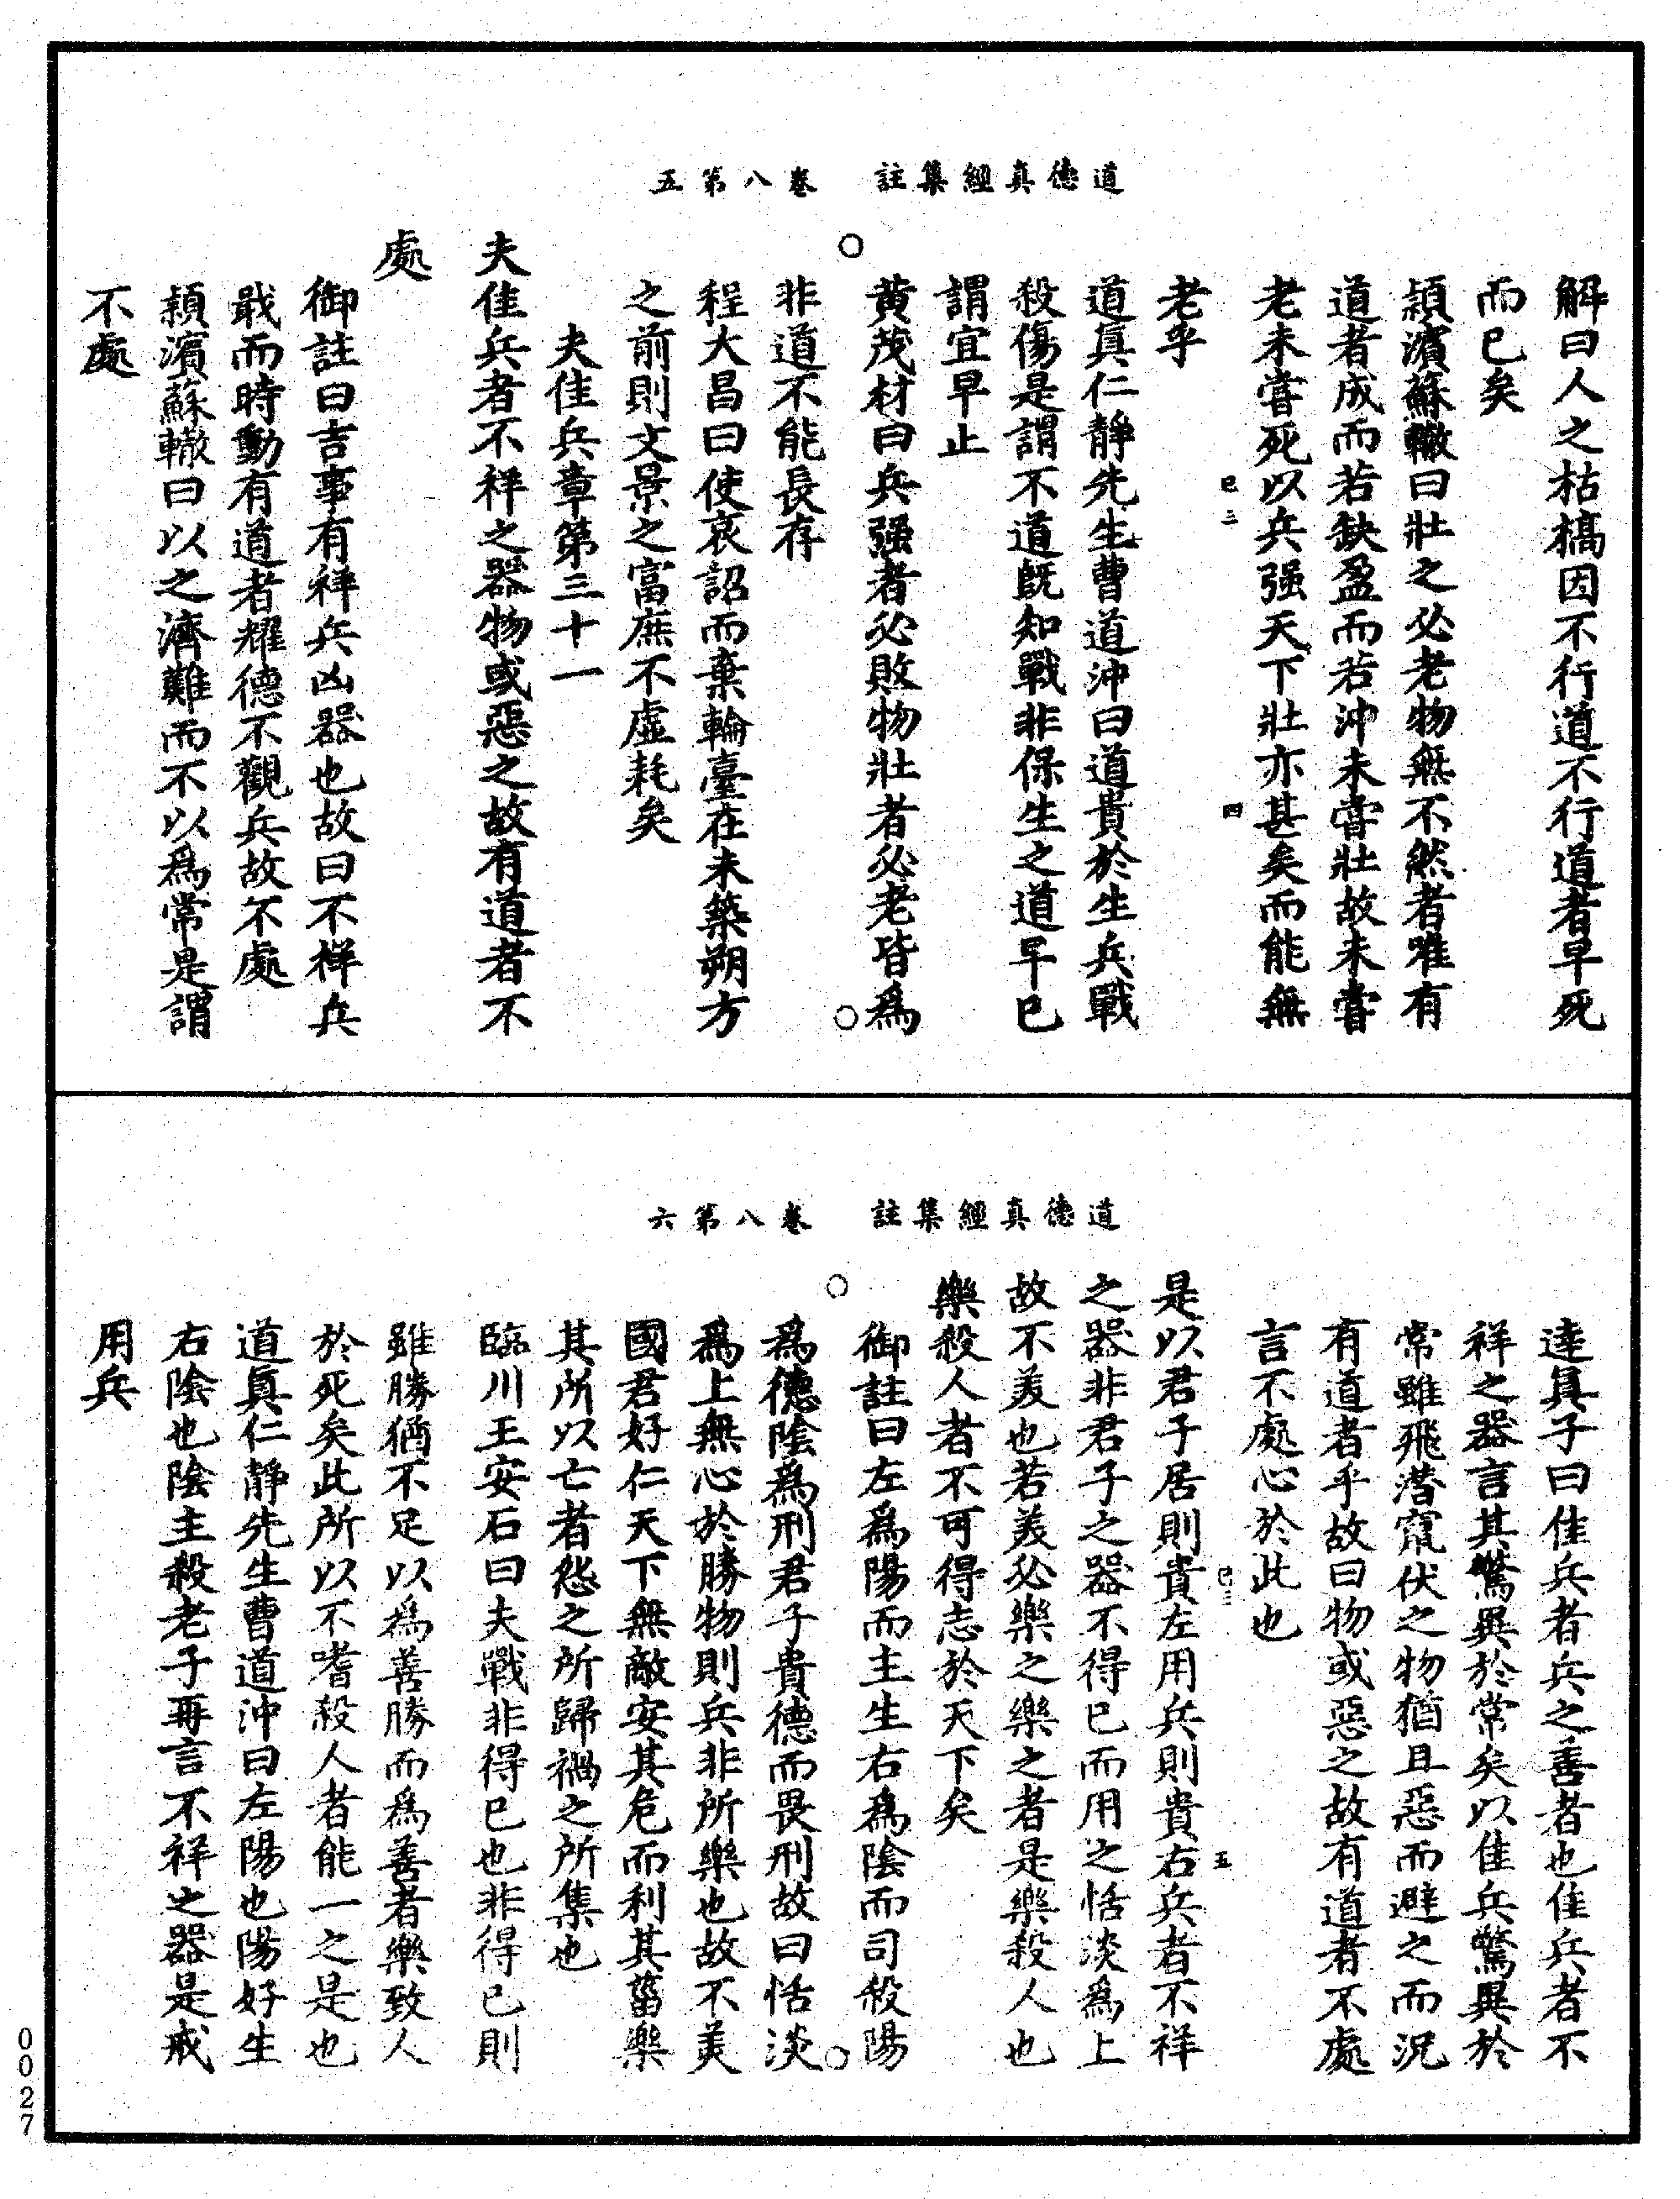 道德真經集註　卷八第五
解曰人之枯槁因不行道不行道者早死
而已矣
潁濱蘇轍曰壯之必老物無不然者唯有
道者成而若缺盈而若沖未嘗壯故未嘗
老未嘗死以兵强天下壯亦甚矣而能無
已二　四
老乎
道真仁靜先生曹道沖曰道貴於生兵戰
殺傷是謂不道既知戰非保生之道早已
謂宜早止
黄茂材曰兵强者必敗物壯者必老皆爲
非道不能長存
程大昌曰使哀詔而棄輪臺在未築朔方
之前則文景之富庶不虛耗矣
夫佳兵章第三十一
夫佳兵者不祥之器物或惡之故有道者不
處
御註曰吉事有祥兵凶器也故曰不祥兵
戢而時動有道者耀德不觀兵故不處
潁濱蘇轍曰以之濟難而不以爲常是謂
不處
道德真經集註　卷八第六
達真子曰佳兵者兵之善者也佳兵者不
祥之器言其驚異於常矣以佳兵驚異於
常雖飛潛竄伏之物猶且惡而避之而況
有道者乎故曰物或惡之故有道者不處
言不處心於此也
已三　五
是以君子居則貴左用兵則貴右兵者不祥
之器非君子之器不得已而用之恬淡爲上
故不美也若美必樂之樂之者是樂殺人也
樂殺人者不可得志於天下矣
御註曰左爲陽而主生右爲陰而司殺陽
爲德陰爲刑君子貴德而畏刑故曰恬淡
爲上無心於勝物則兵非所樂也故不美
國君好仁天下無敵安其危而利其菑樂
其所以亡者怨之所歸禍之所集也
臨川王安石曰夫戰非得已也非得已則
雖勝猶不足以爲善勝而爲善者樂致人
於死矣此所以不嗜殺人者能一之是也
道真仁靜先生曹道沖曰左陽也陽好生
右陰也陰主殺老子再言不祥之器是戒
用兵
0027